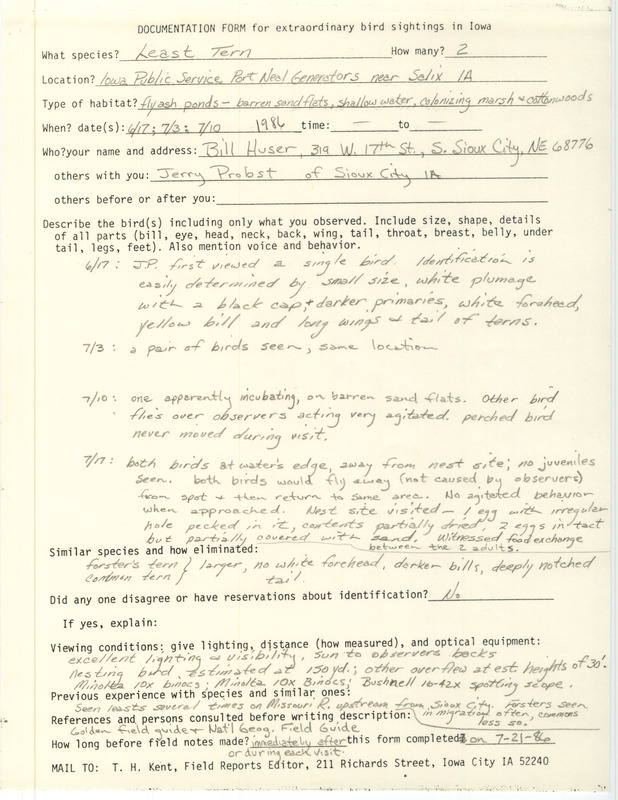 DOCUMENTATION FORM for extraordinary bird sightings in Iowa
What species? Least Tern How many? 2
Location? Iowa Public Service Port Neal Generators near Salix IA
Type of habitat? flyash ponds - barren sand flats, shallow water, colonizing marsh & cottonwoods
When? date(s): 6/17; 7/3; 7/10 1986 time: — to —
Who? your name and address: Bill Huser, 319 W. 17th St., S. Sioux City, NE 68776
others with you: Jerry Probst of Sioux City IA
others before or after you:
Describe the bird(s) including only what you observed. Include size, shape, details
of all parts (bill, eye, head, neck, back, wing, tail, throat, breast, belly, under
tail, legs, feet). Also mention voice and behavior.
6/17: J.P. first viewed a single bird. Identification is
easily determined by small size, white plumage
with a black cap, & darker primaries, white forehead,
yellow bill and long wings & tail of terns.
7/3: a pair of birds seen, same location
7/10: one apparently incubating, on barren sand flats. Other bird
flies over observers acting very agitated. perched bird
never moved during visit.
7/17: both birds at water's edge, away from nest site; no juveniles
seen. both birds would fly away (not caused by observers)
from spot & then return to same area. No agitated behavior
when approached. Nest site visited - 1 egg with irregular
hole pecked in it, contents partially dried, 2 eggs intact
but partially covered with sand. Witnessed food exchange
between the 2 adults.
Similar species and how eliminated:
forster's tern } larger, no white forehead, darker bills, deeply notched
common tern } tail.
Did any one disagree or have reservations about identification? No
If yes, explain:
Viewing conditions: give lighting, distance (how measured), and optical equipment:
excellent lighting & visibility, sun to observers backs
nesting bird estimated at 150 yd.; other overflew at est. heights of 30'.
Minolta 10x binocs; Minolta 10x Binocs; Bushnell 16-42x spotting scope.
Previous experience with species and similar ones:
Seen leasts several times on Missouri R. upstream from Sioux City. forsters seen
in migration often, commons
less so.
References and persons consulted before writing description:
Golden field guide & Nat'l Geog. Field Guide
How long before field notes made? immediately after this form completed? on 7-21-86
or during each visit.
MAIL TO: T. H. Kent, Field Reports Editor, 211 Richards Street, Iowa City IA 52240